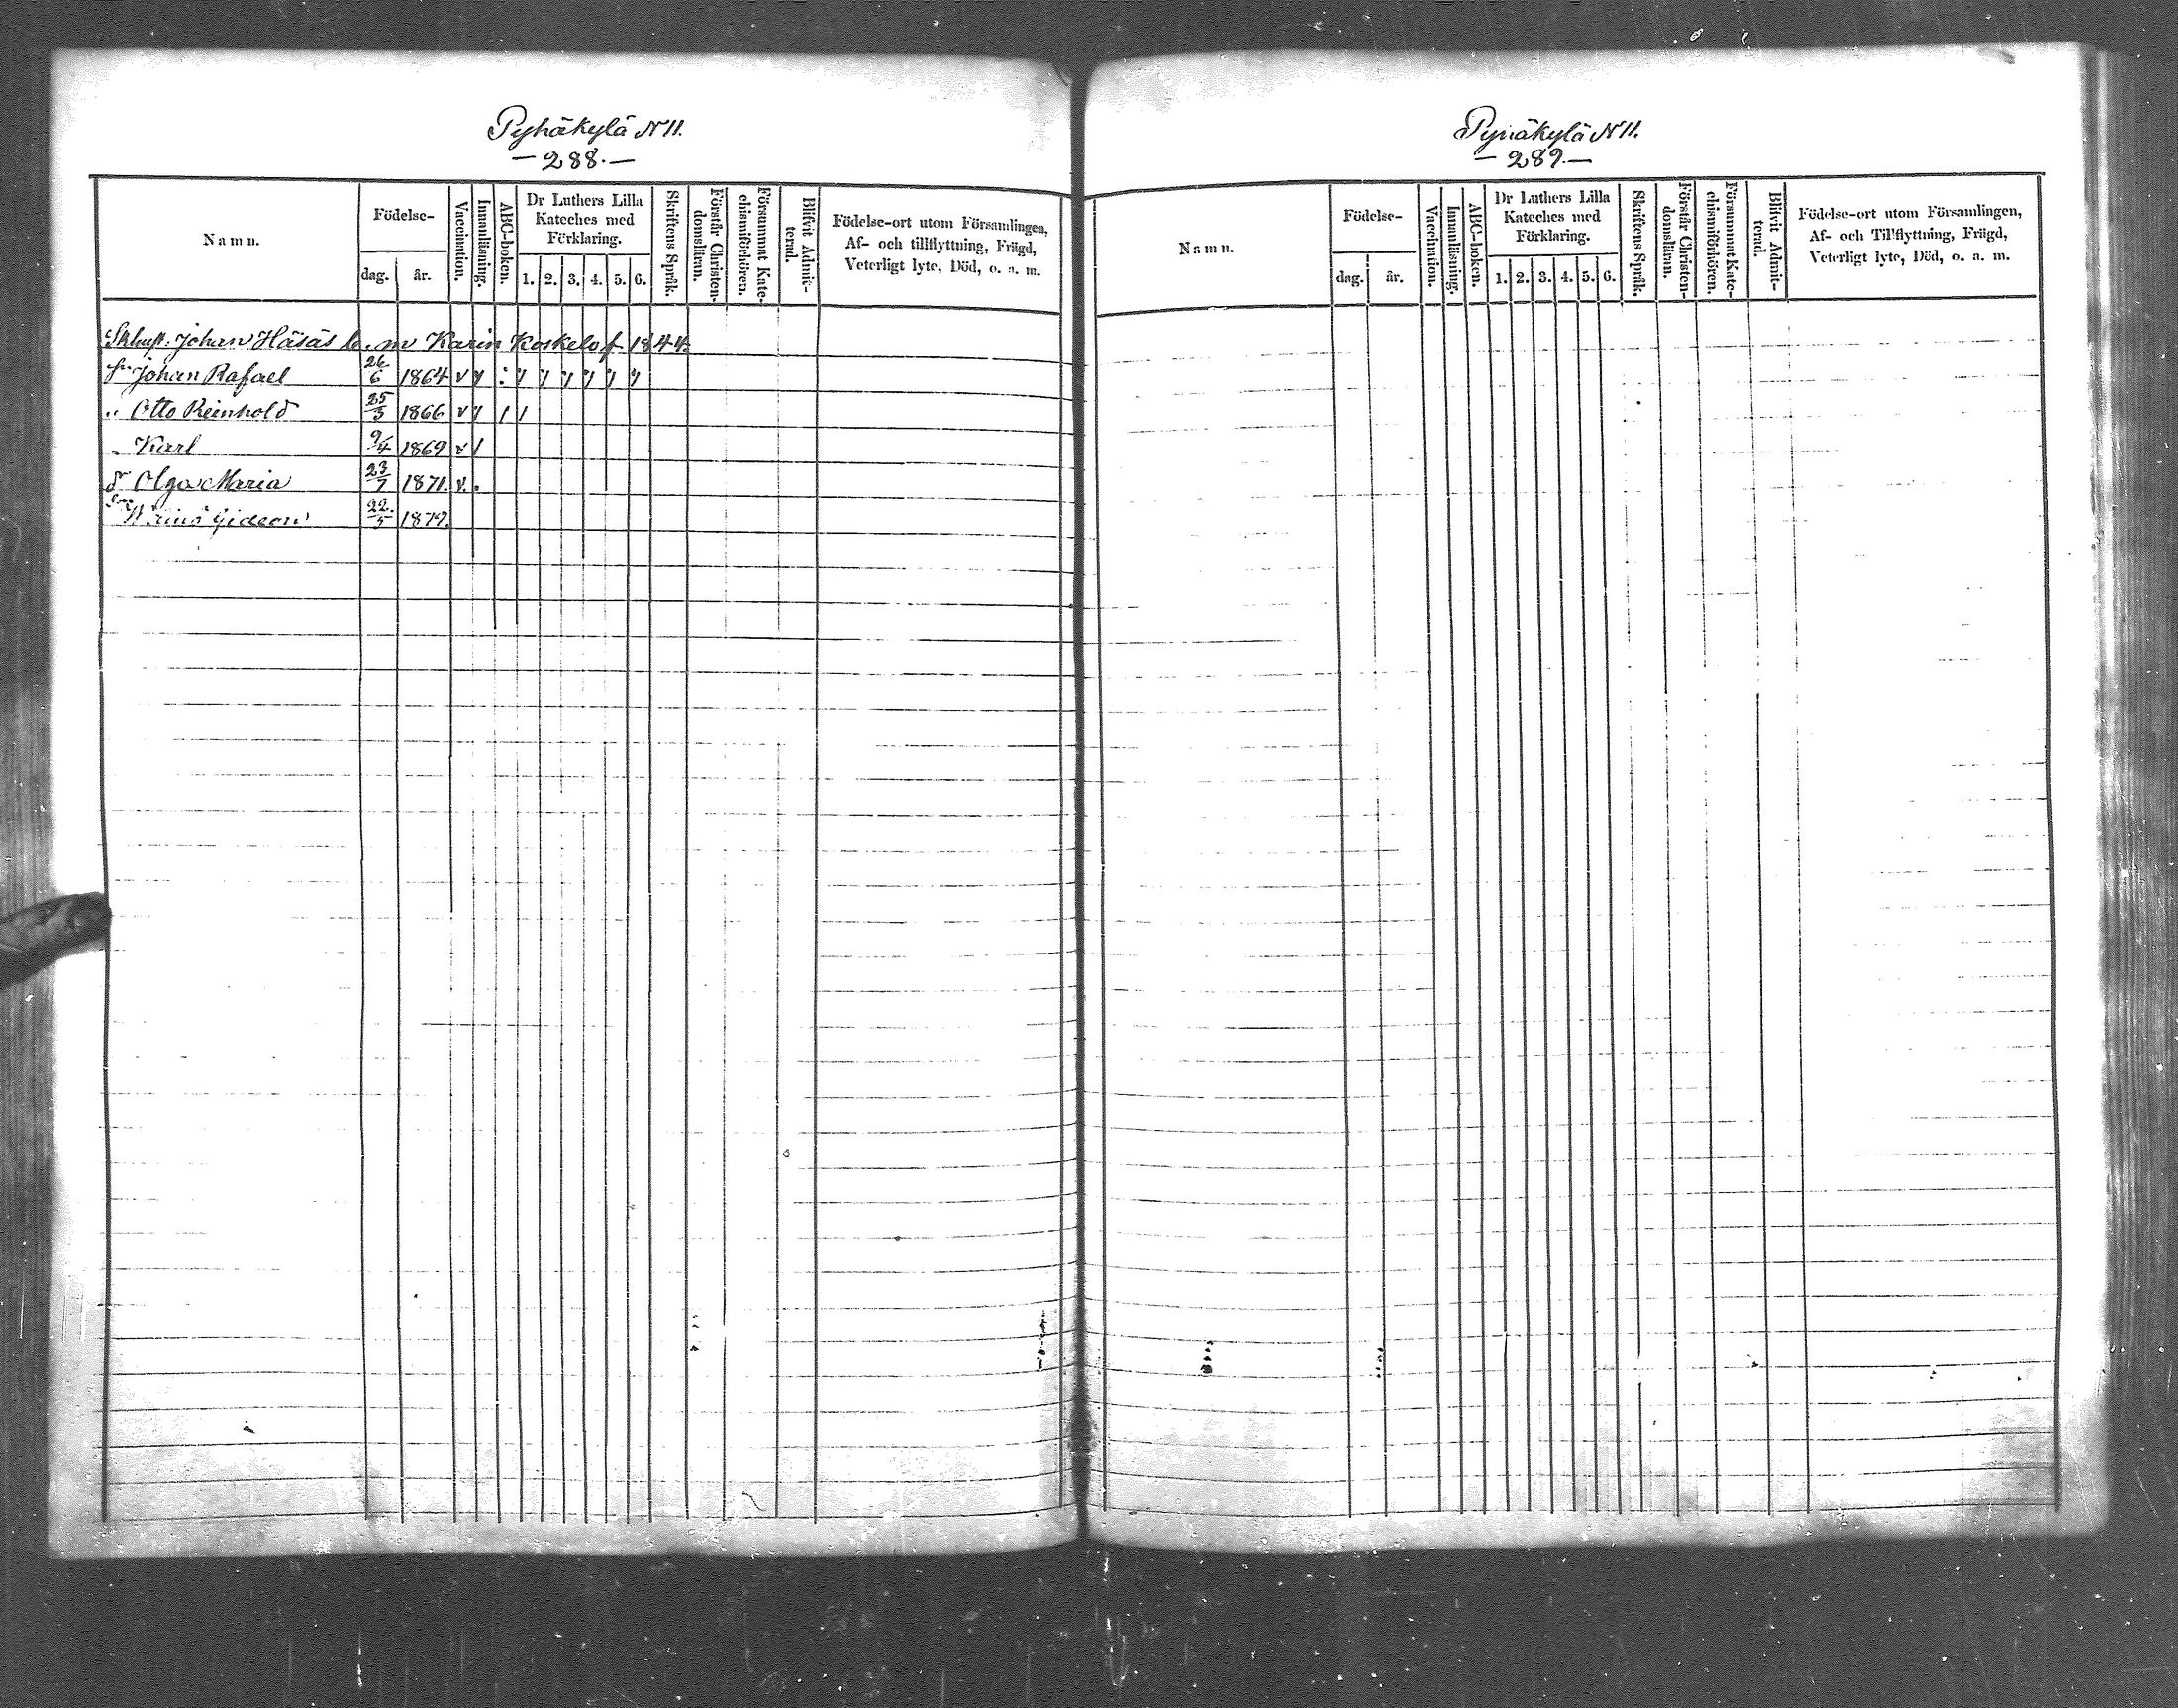 Pyhäkylä N 11.
— 288. —
Namn.
Födelse-
dag.
år.
Vaccination.
Innanläsning.
ABC-boken.
Dr Luthers Lilla
Kateches med
Förklaring.
1. 2. 3. 4. 5. 6.
Skriftens Språk.
Förstår Christen-
domsläran.
Försummat Kate-
chismiförhören.
Blifvit Admit-
terad.
Födelse-ort utom Församlingen,
Af- och tillflyttning, Frägd,
Veterligt lyte, Död, o. a. m.
Johan Häsäs Karin Koskelo f 1844.
Johan Rafael 26/6 1864
" Otto Reinhold 25/3 1866
" Karl 9/4 1869
dr Olga Maria 23/7 1871.
Gideon 22/5
Pyhäkylä N 11.
— 289. —
Namn.
Födelse-
dag.
år.
Vaccination.
Innanläsning.
ABC-boken.
Dr Luthers Lilla
Kateches med
Förklaring.
1. 2. 3. 4. 5. 6.
Skriftens Språk.
Förstår Christen-
domsläran.
Försummat Kate-
chismiförhören.
Blifvit Admit-
terad.
Födelse-ort utom Församlingen,
Af- och Tillflyttning, Frägd,
Veterligt lyte, Död, o. a. m.